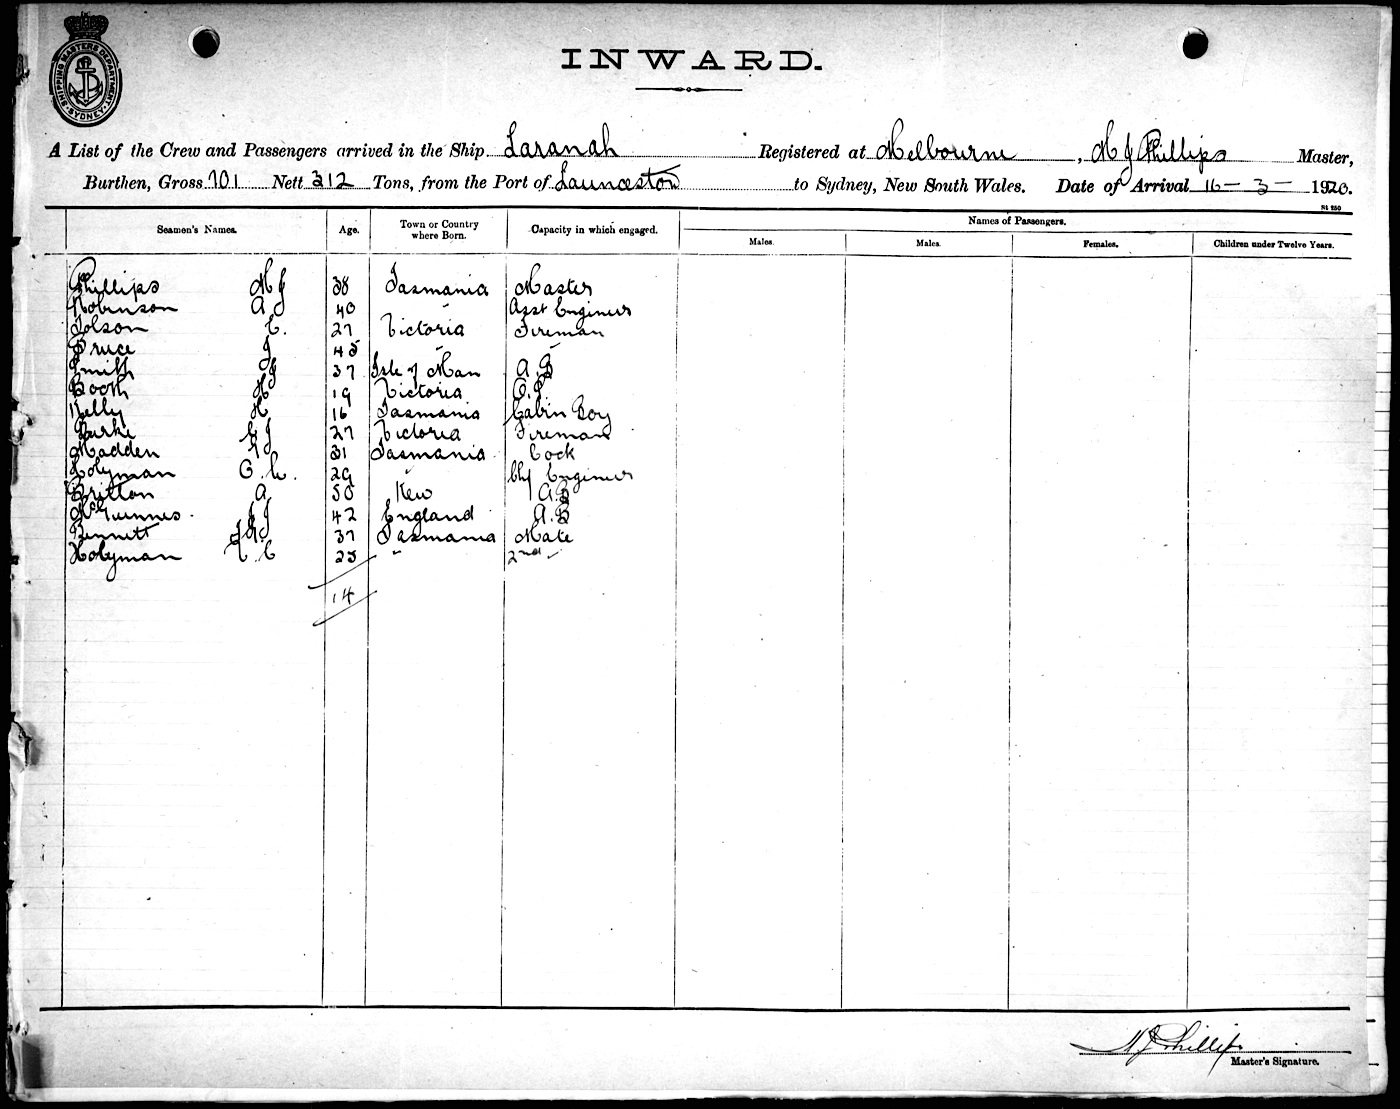 SHIPPING MASTERS DEPARTMENT SYDNEY
INWARD.
A List of the Crew and Passengers arrived in the Ship Laranah Registered at Melbourne, H J Phillips Master,
Burthen, Gross 701 Nett 312 Tons, from the Port of Launceston to Sydney, New South Wales. Date of Arrival 16 - 3 - 1920.
St 250
Seamen's Names. Age. Town or Country where Born. Capacity in which engaged. Names of Passengers.
Males. Males. Females. Children under Twelve Years.
Phillips H J 38 Tasmania Master
Robinson A J 40 " Asst Engineer
Tolson C. 27 Victoria Fireman
Bruce J 45 " "
Smith 37 Isle of Man A.B
Booth H 19 Victoria O.S
Kelly H 16 Tasmania Cabin Boy
Burke E J 27 Victoria Fireman
Madden 31 Tasmania Cook
Holyman C. 29 " Chf Engineer
Britton A 50 Kew A.B
McGuinnes J J 42 England A.B
Bennett 37 Tasmania Mate
Holyman C 25 " 2nd "
14
H J Phillips
Master's Signature.